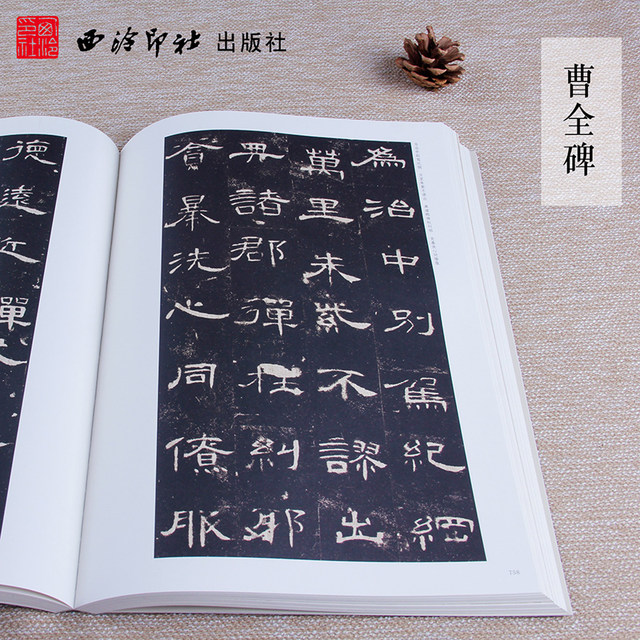 西泠印社
西泠印社 出版社
曹全碑
為治中別駕紀綱
萬里朱紫不謬出
典諸郡彈枉糾邪
貪暴洗心同僚服
德遠近憚